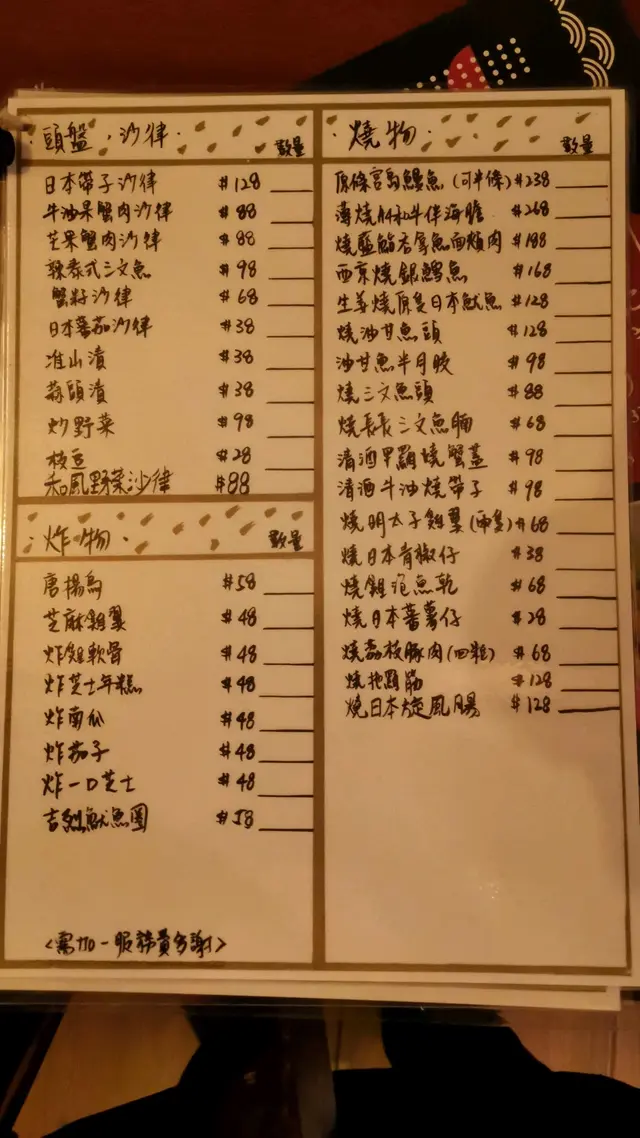 頭盤．沙律． 數量
日本帶子沙律 $128
牛油果蟹肉沙律 $88
芒果蟹肉沙律 $88
辣泰式三文魚 $98
蟹籽沙律 $68
日本蕃茄沙律 $38
淮山漬 $38
蒜頭漬 $38
炒野菜 $98
枝豆 $28
和風野菜沙律 $88
．炸物． 數量
唐揚鳥 $58
芝麻雞翼 $48
炸雞軟骨 $48
炸芝士年糕 $48
炸南瓜 $48
炸茄子 $48
炸一口芝士 $48
吉列魷魚圈 $58
<需加一服務費多謝>
．燒物． 數量
原條宮島鱷魚 (可半條) $238
薄燒A4和牛伴海膽 $268
燒藍鰭吞拿魚面頰肉 $188
西京燒銀鱈魚 $168
生姜燒原隻日本魷魚 $128
燒油甘魚頭 $128
油甘魚半月鮫 $98
燒三文魚頭 $88
燒長長三文魚腩 $68
清酒甲羅燒蟹蓋 $98
清酒牛油燒帶子 $98
燒明太子雞翼 (兩隻) $68
燒日本青椒仔 $38
燒雞泡魚乾 $68
燒日本蕃薯仔 $28
燒荔枝豚肉 (四粒) $68
燒牝蹄筋 $128
燒日本旋風腸 $128